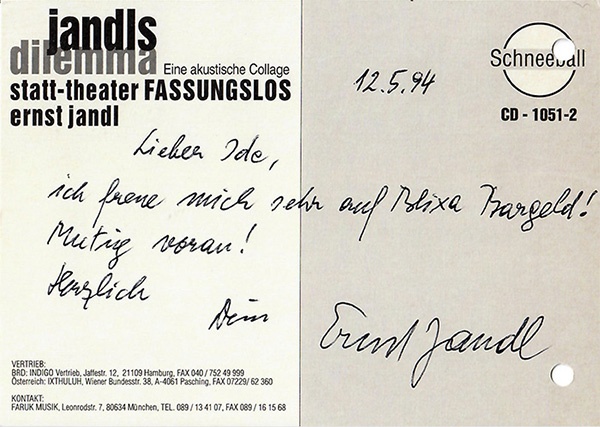 jandls
dilemma Eine akustische Collage
statt-theater FASSUNGSLOS
ernst jandl
Schneeball
CD - 1051-2
12.5.94
Lieber Ide,
ich freue mich sehr auf Blixa Bargeld!
Mutig voran!
Herzlich
Dein
Ernst Jandl
VERTRIEB:
BRD: INDIGO Vertrieb, Jaffestr. 12, 21109 Hamburg, FAX 040 / 752 49 999
Österreich: IXTHULUH, Wiener Bundesstr. 38, A-4061 Pasching, FAX 07229/ 62 360
KONTAKT:
FARUK MUSIK, Leonrodstr. 7, 80634 München, TEL. 089 / 13 41 07, FAX 089 / 16 15 68